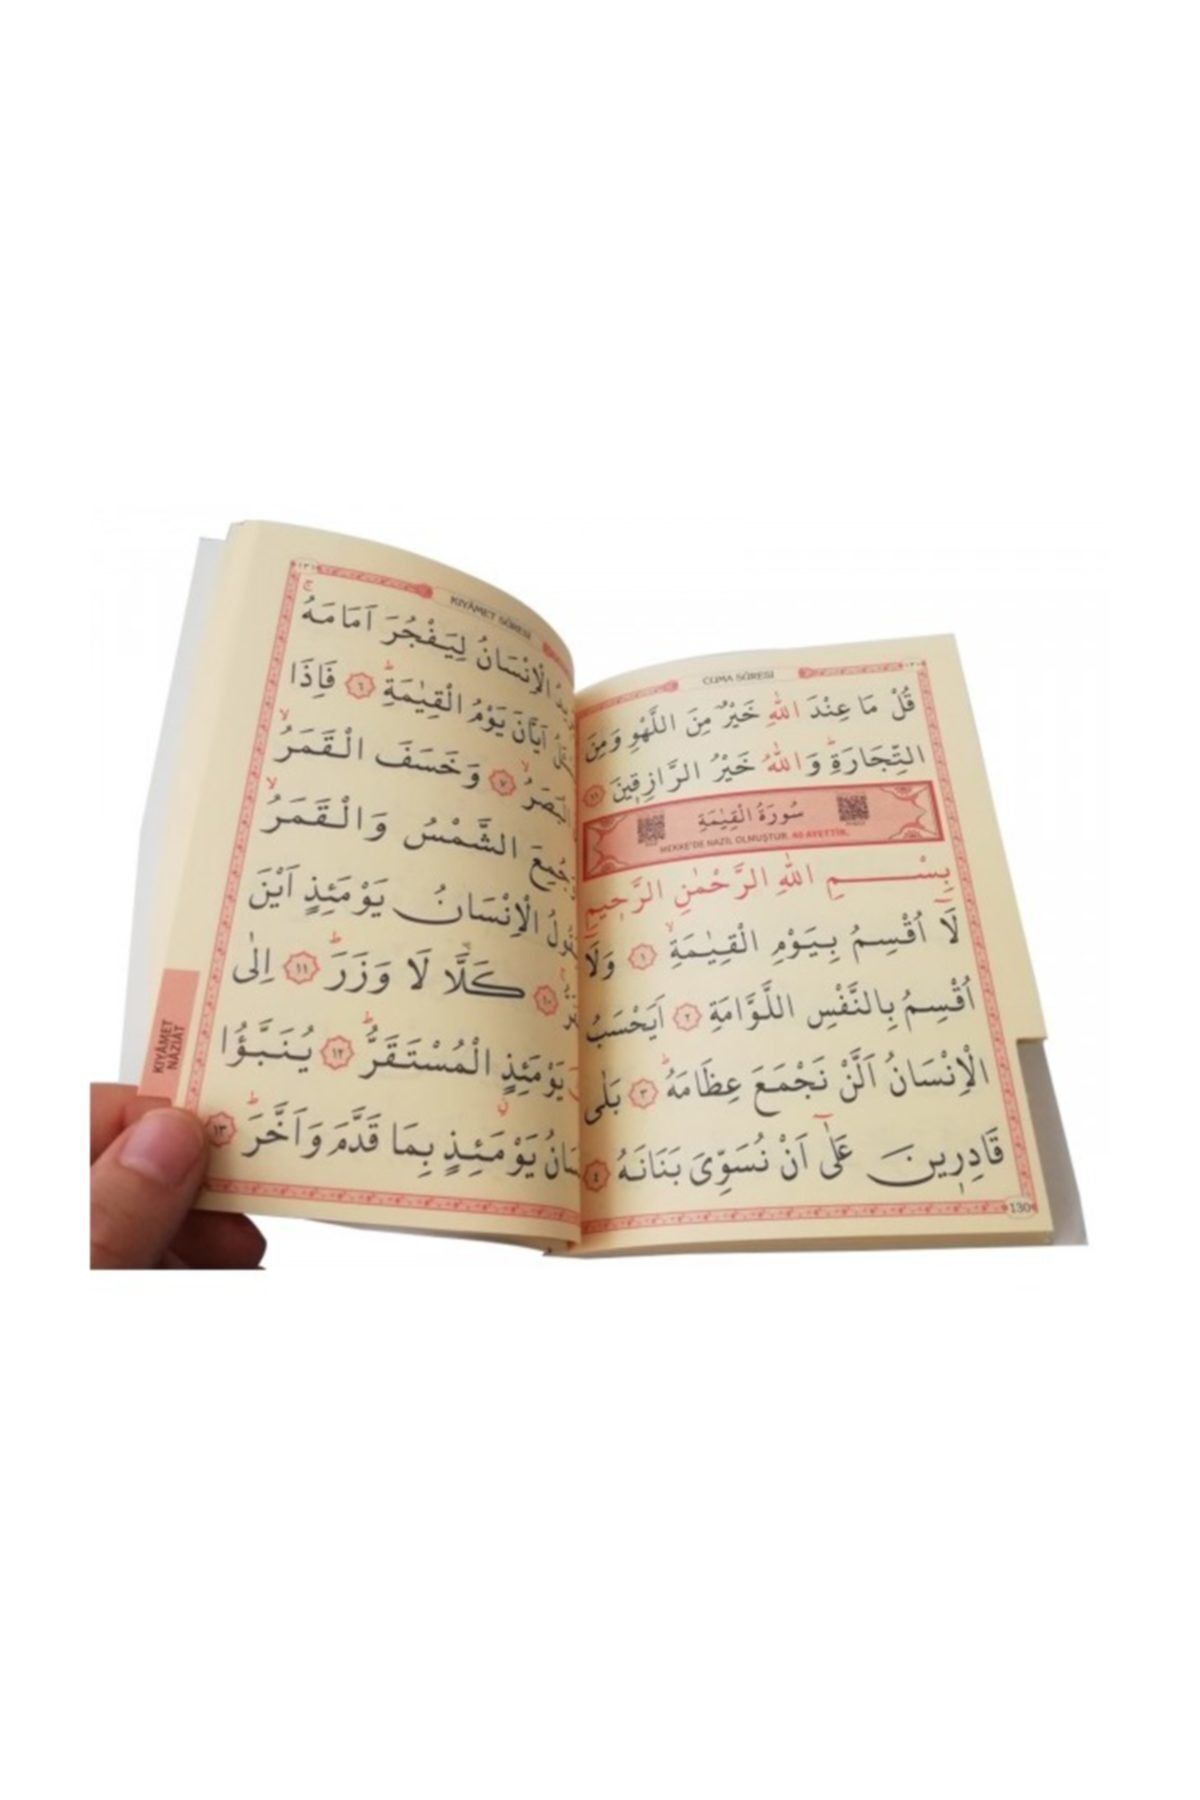 CUMA SÛRESİ
قُلْ مَا عِنْدَ اللّٰهِ خَيْرٌ مِنَ اللَّهْوِ وَمِنَ
التِّجَارَةِۜ وَاللّٰهُ خَيْرُ الرَّازِق۪ينَ ١١
سُورَةُ الْقِيٰمَةِ
MEKKE'DE NAZİL OLMUŞTUR. 40 AYETTİR.
بِسْمِ اللّٰهِ الرَّحْمٰنِ الرَّح۪يمِ
لَٓا اُقْسِمُ بِيَوْمِ الْقِيٰمَةِۙ ١ وَلَٓا
اُقْسِمُ بِالنَّفْسِ اللَّوَّامَةِ ٢ اَيَحْسَبُ
الْاِنْسَانُ اَلَّنْ نَجْمَعَ عِظَامَهُۜ ٣ بَلٰى
قَادِر۪ينَ عَلٰٓى اَنْ نُسَوِّيَ بَنَانَهُ ٤
130
١٣١
KIYÂMET SÛRESİ
الْاِنْسَانُ لِيَفْجُرَ اَمَامَهُۚ
اَيَّانَ يَوْمُ الْقِيٰمَةِۜ ٦ فَاِذَا
الْبَصَرُۙ ٧ وَخَسَفَ الْقَمَرُۙ
وَجُمِعَ الشَّمْسُ وَالْقَمَرُۙ
الْاِنْسَانُ يَوْمَئِذٍ اَيْنَ
١٠ كَلَّا لَا وَزَرَۜ ١١ اِلٰى
يَوْمَئِذٍ الْمُسْتَقَرُّۜ ١٢ يُنَبَّؤُا
يَوْمَئِذٍ بِمَا قَدَّمَ وَاَخَّرَۜ ١٣
KIYÂMET
NÂZİÂT